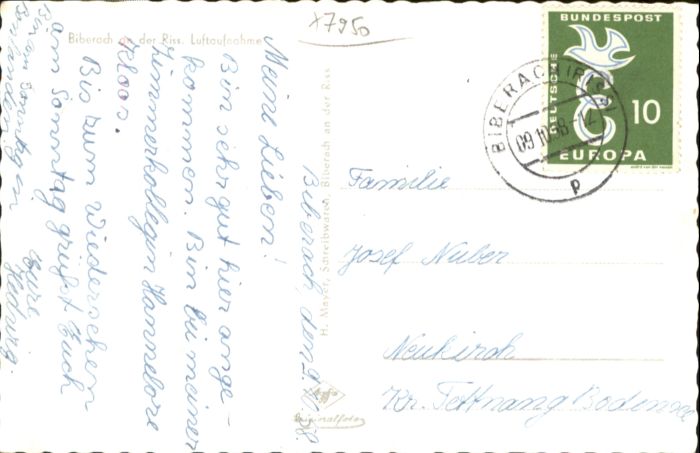 Biberach an der Riss. Luftaufnahme
X7950
Biberach, den 9.10.58.
Meine Lieben!
Bin sehr gut hier ange-
kommen. Bin bei meiner
Zimmerkollegin Hannelore
Kloos.
Bis zum Wiedersehen
am Sonntag grüßt Euch
Eure
Hedwig.
Bin am Sonntag in
H. Mayer, Schreibwaren, Biberach an der Riss
Agfa
Originalfoto
DEUTSCHE
BUNDESPOST
10
EUROPA
BIBERACH (RISS)
09.10.58-12
p
Familie
Josef Nuber
Neukirch
Kr. Tettnang Bodensee